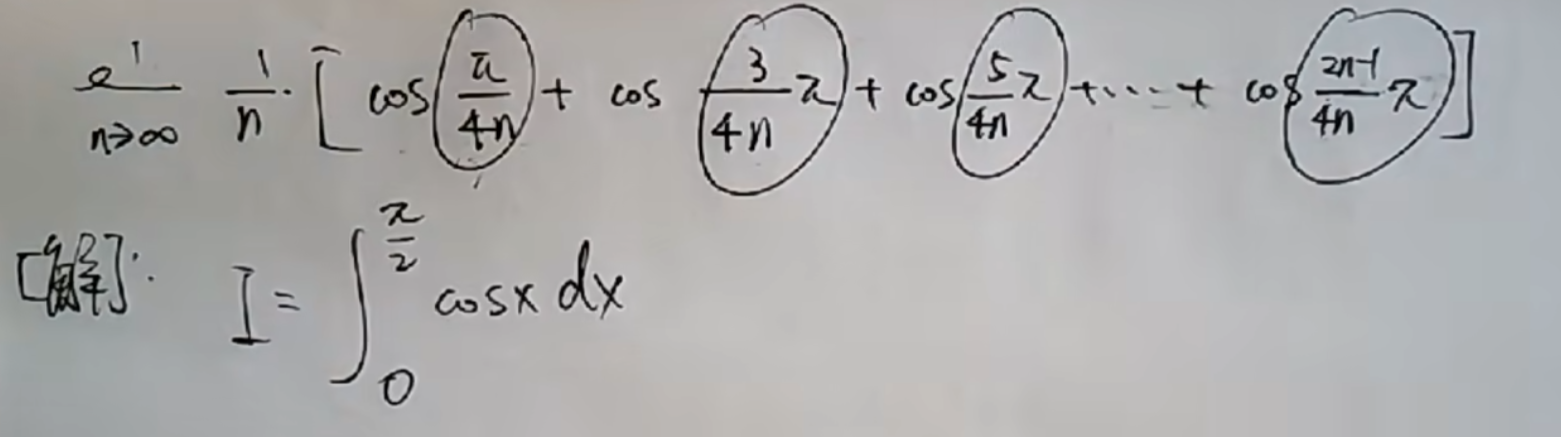 lim n→∞ 1/n · [ cos π/4n + cos 3/4n π + cos 5/4n π + ⋯ + cos 2n-1/4n π ]
[解]: I = ∫₀^{π/2} cosx dx